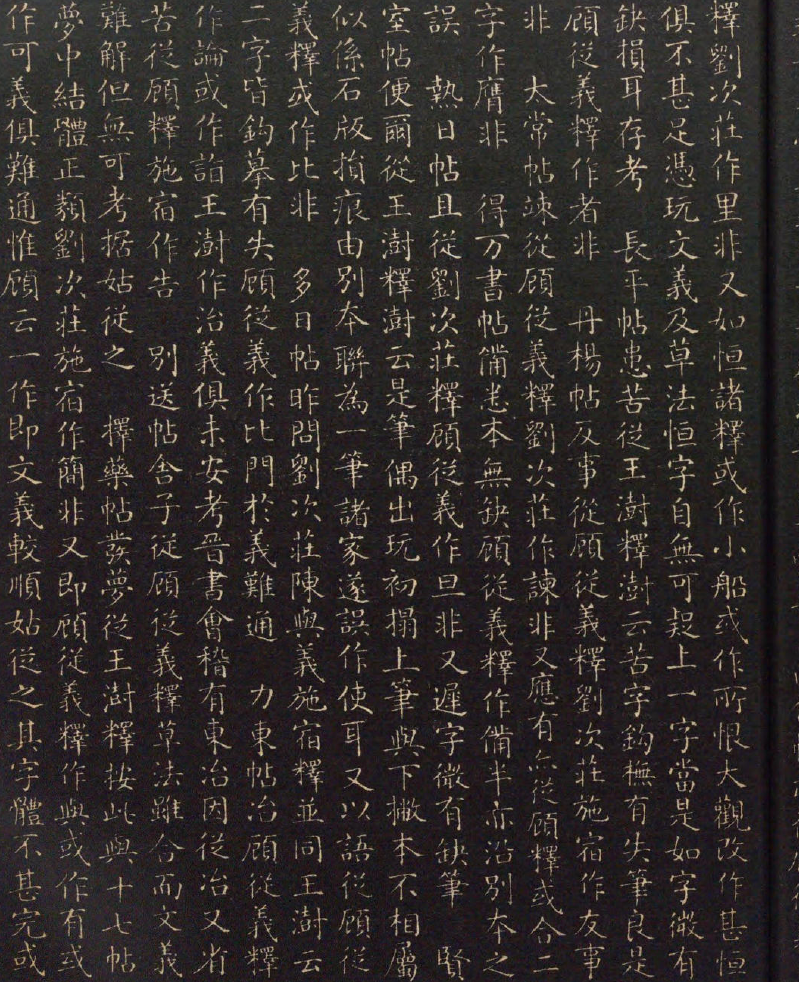 釋劉次莊作里非又如恒諸釋或作小船或作所恨大觀改作甚恒
俱不甚足憑玩文義及草法恒字自無可疑上一字當是如字微有
缺損耳存考　長平帖患苦從王澍釋澍云苦字鈎橅有失筆良是
顧從義釋作者非　丹楊帖及事從顧從義釋劉次莊施宿作友事
非　太常帖竦從顧從義釋劉次莊作諫非又應有尓從顧釋或合二
字作膺非　得万書帖備悉本無缺顧從義釋作備半亦沿別本之
誤　熱日帖且從劉次莊釋顧從義作旦非又遲字微有缺筆　賢
室帖便爾從王澍釋澍云是筆偶出玩初搨上筆與下撇本不相屬
似係石版損痕由別本聯為一筆諸家遂誤作使耳又以語從顧從
義釋或作比非　多日帖昨問劉次莊陳與義施宿釋並同王澍云
二字皆鈎摹有失顧從義作比門於義難通　力東帖冶顧從義釋
作論或作詣王澍作治義俱未安考晉書會稽有東冶因從冶又省
苦從顧釋施宿作告　別送帖舍子從顧從義釋草法雖合而文義
難解但無可考據姑從之　擇藥帖發夢從王澍釋按此與十七帖
夢中結體正類劉次莊施宿作簡非又即顧從義釋作與或作有或
作可義俱難通惟顧云一作即文義較順姑從之其字體不甚完或